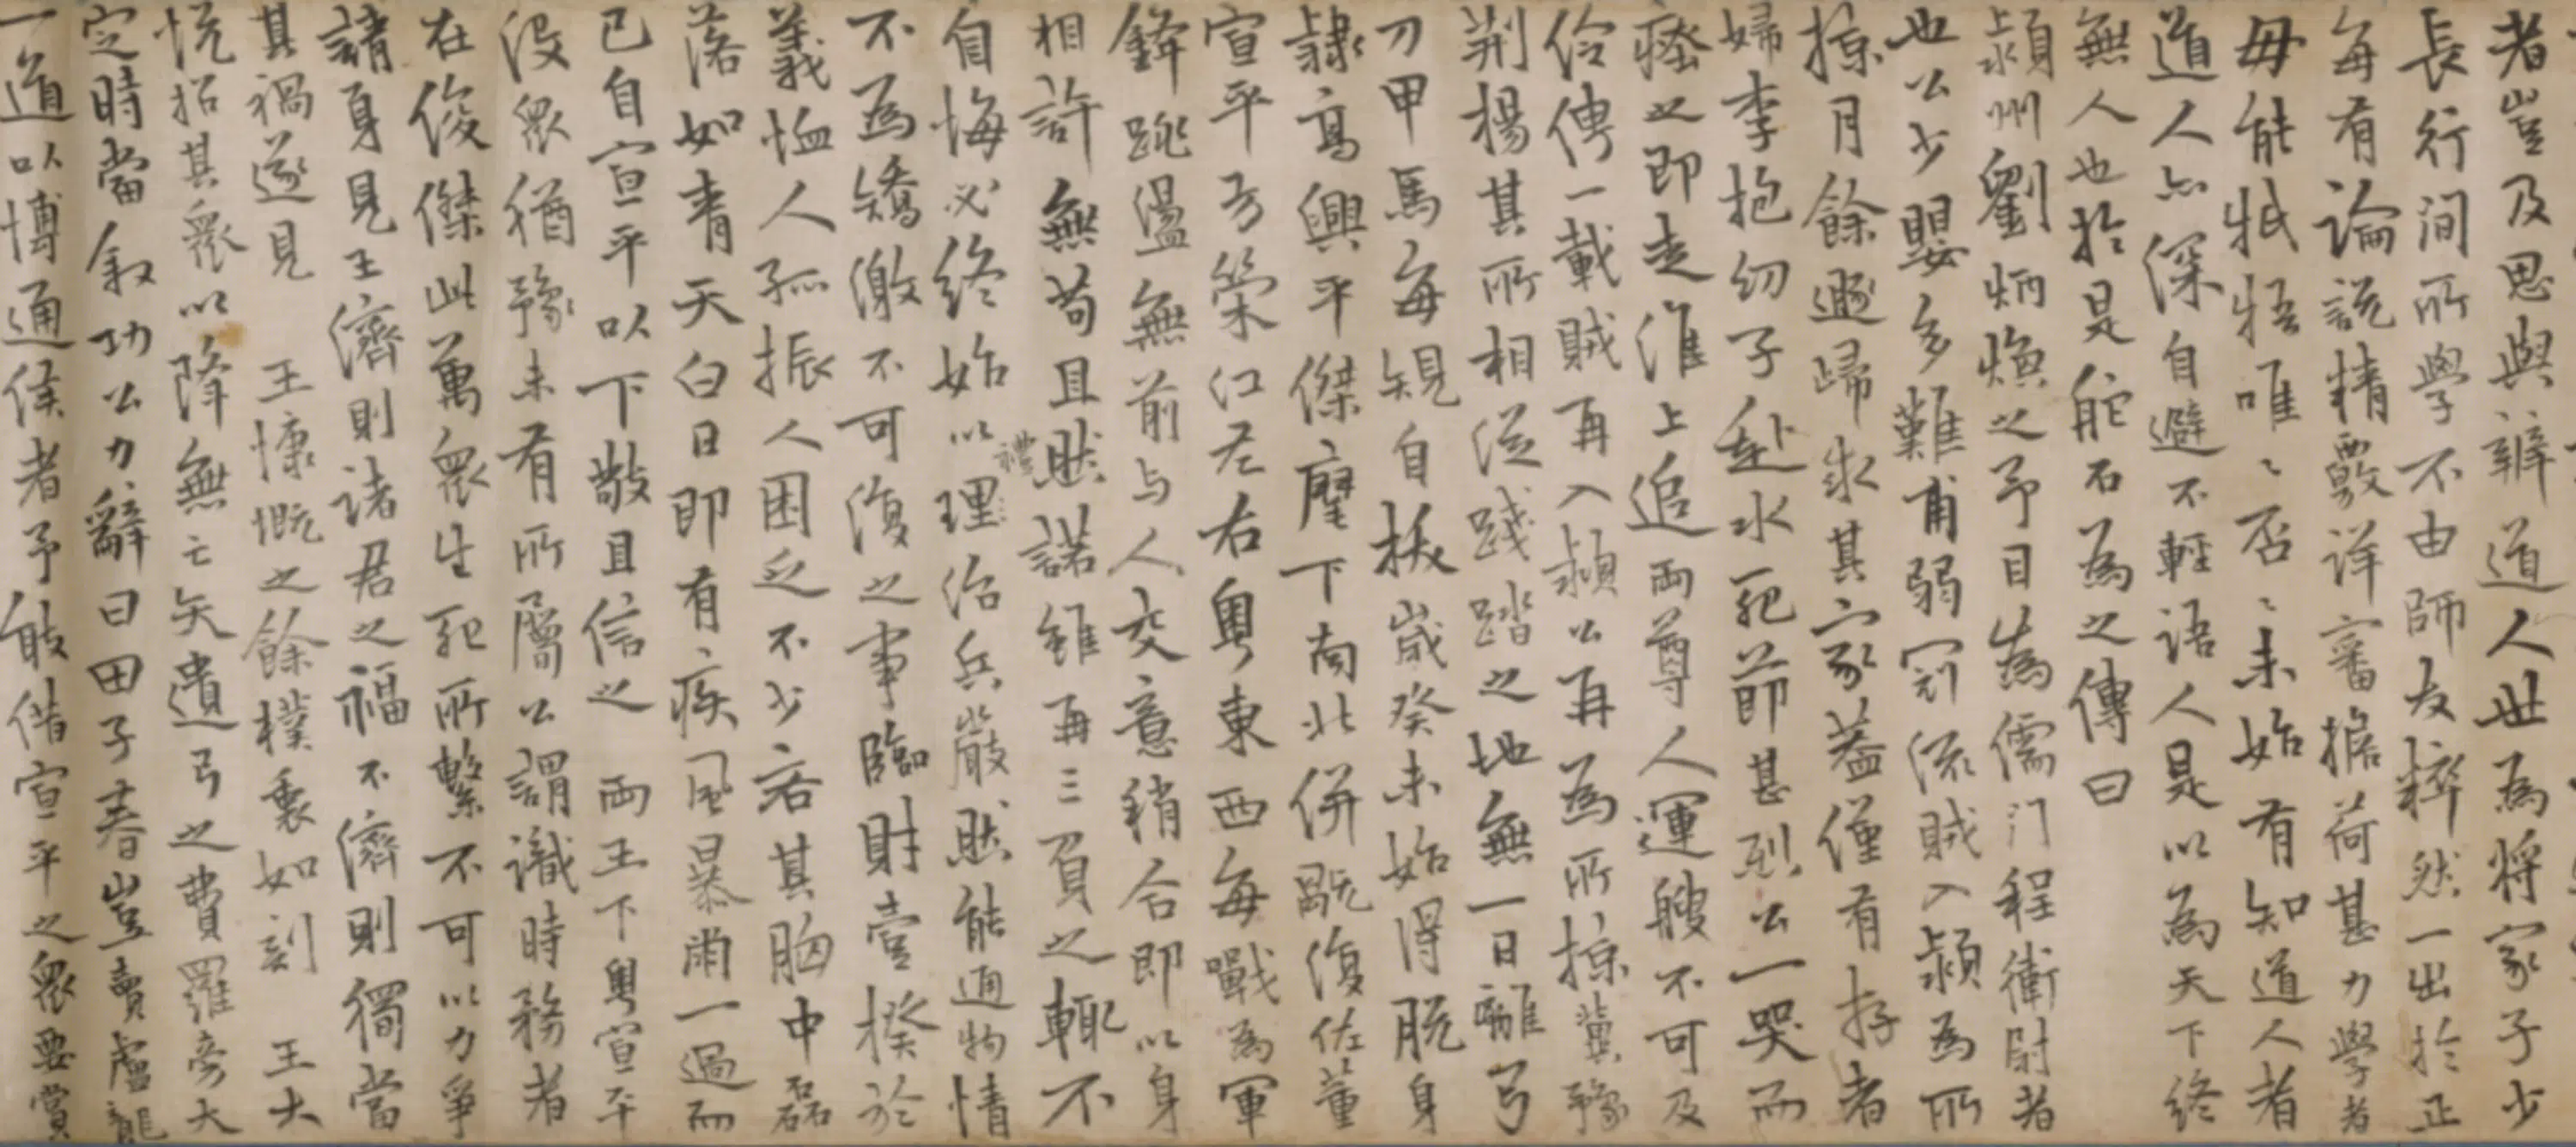 者豈及思與辯道人世為將家子少
長行間所學不由師友粹然一出於正
每有論說精覈詳審擔荷甚力學者
毋能牴牾唯〻否〻未始有知道人者
道人亦深自避不輕語人是以為天下終
無人也於是舵石為之傳曰
潁州劉炳煥之予目為儒門程衛尉者
也公少嬰多難甫弱冠流賊入潁為所
掠月餘遯歸求其家蓋僅有存者
婦李抱幼子赴水死節甚烈公一哭而
瘞之即走淮上追兩尊人運艘不可及
伶俜一載賊再入潁公再為所掠冀豫
荆楊其所相從踐踏之地無一日離弓
刀甲馬每覢自拔歲癸未始得脫身
隸高興平傑麾下南北併翫復佐董
宣平方榮江左右粵東西每戰為軍
鋒跳盪無前与人交意稍合即以身
相許無苟且然諾雖再三負之輒不
自悔必終始以理禮治兵嚴然能通物情
不為矯激不可復之事臨財壹揆於
義恤人孤振人困乏不少吝其胸中磊
落如青天白日即有疾風暴雨一過而
已自宣平以下敬且信之 兩王下粵宣平
没眾猶豫未有所屬公謂識時務者
在俊傑此萬眾生死所繫不可以力爭
請身見王濟則諸君之福不濟則獨當
其禍遂見 王慷慨之餘樸裏如剖 王大
悅招其眾以降無亡矢遺弓之費羅帝大
定時當叙功公力辭曰田子春豈賣盧龍
一道以博通侯者予敢借宣平之眾要賞